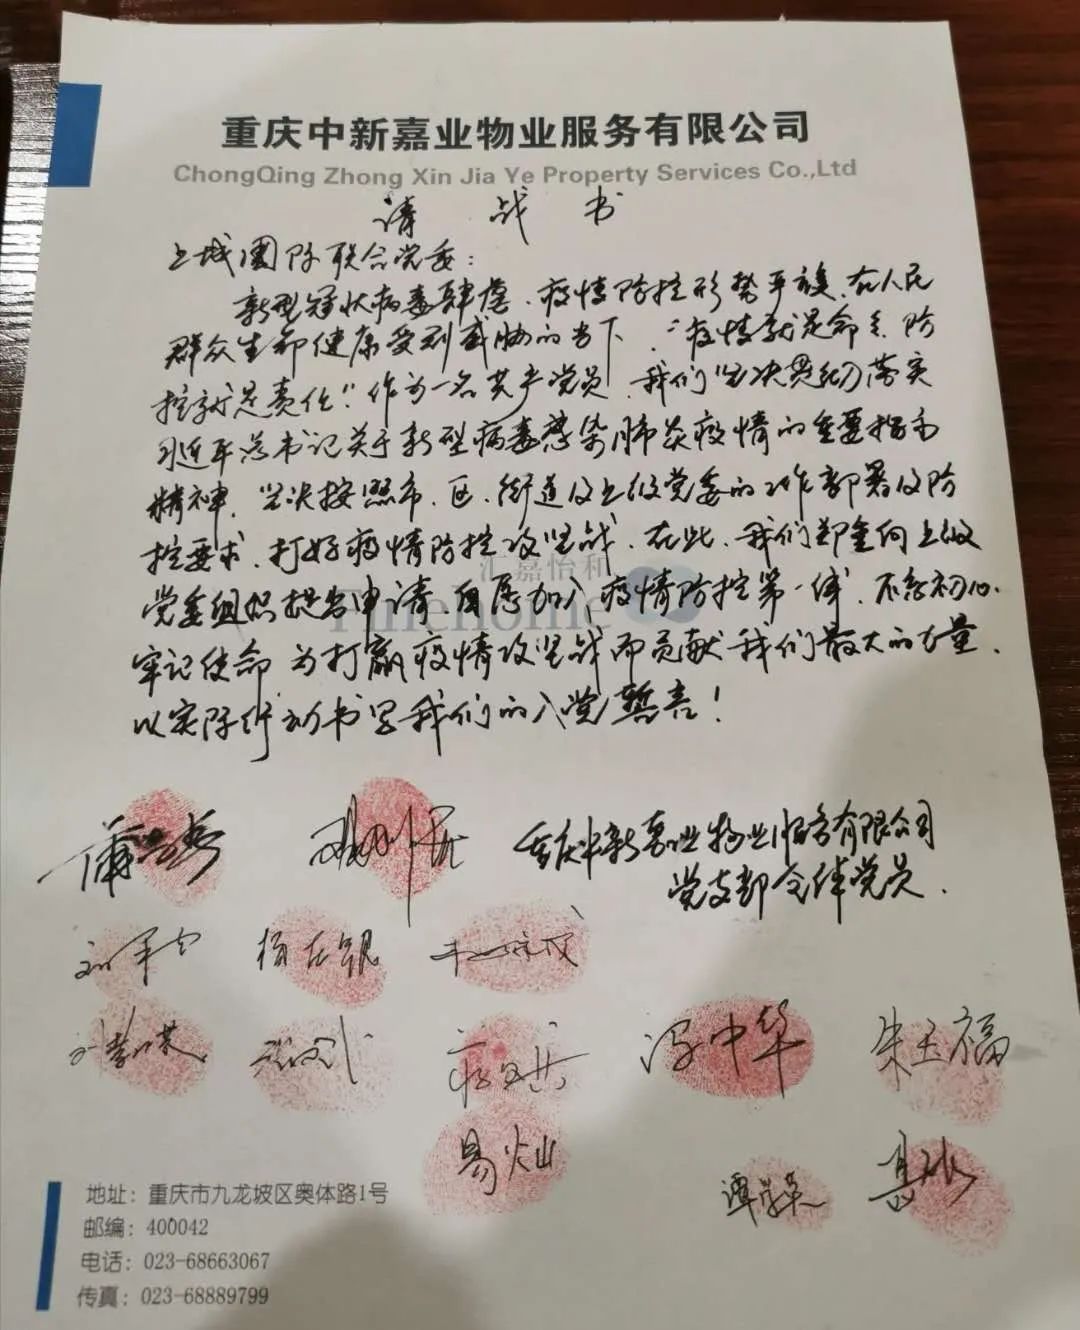 重庆中新嘉业物业服务有限公司
ChongQing Zhong Xin Jia Ye Property Services Co.,Ltd
请战书
上城国际联合党委：
新型冠状病毒肆虐、疫情防控形势严峻、在人民
群众生命健康受到威胁的当下，“疫情就是命令、防
控就是责任”。作为一名共产党员，我们坚决贯彻落实
习近平总书记关于新型病毒感染肺炎疫情的重要指示
精神，坚决按照市、区、街道及上级党委的工作部署及防
控要求、打好疫情防控攻坚战、在此、我们郑重向上级
党委组织提出申请、自愿加入疫情防控第一线、不忘初心、
牢记使命 为打赢疫情攻坚战而贡献我们最大的力量、
以实际行动书写我们的入党誓言！
汇嘉怡和
Finehome
重庆中新嘉业物业服务有限公司
党支部全体党员、
杨在银
冯中华 朱玉福
易灿
地址：重庆市九龙坡区奥体路1号
邮编：400042
电话：023-68663067
传真：023-68889799